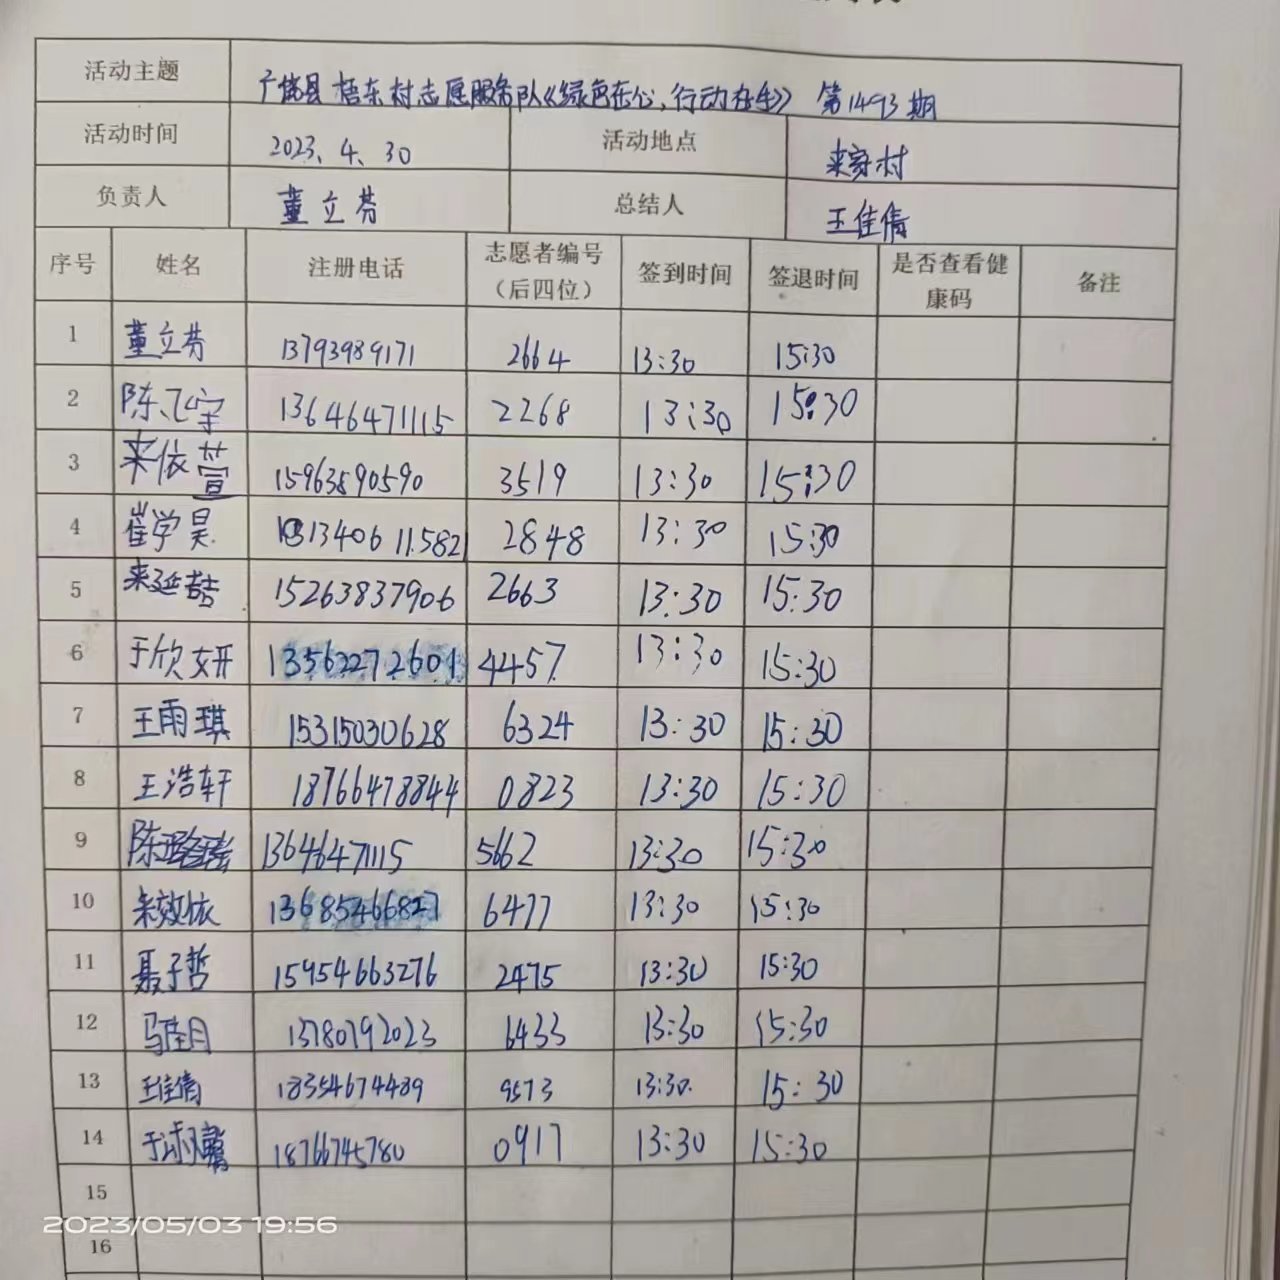 活动主题 广饶县梧东村志愿服务队《绿色在心,行动在生》 第1493期
活动时间 2023、4、30 活动地点 来家村
负责人 董立芬 总结人 王佳倩
序号 姓名 注册电话 志愿者编号(后四位) 签到时间 签退时间 是否查看健康码 备注
1 董立芬 13793989171 2664 13:30 15:30
2 陈飞宇 13646471115 2268 13:30 15:30
3 来依萱 15963890590 3519 13:30 15:30
4 崔学昊 13406 11582 2848 13:30 15:30
5 来延喆 15263837906 2663 13:30 15:30
6 于欣妍 13562272601 4457 13:30 15:30
7 王雨琪 15315030628 6324 13:30 15:30
8 王浩轩 18766478844 0823 13:30 15:30
9 陈 13646471115 5662 13:30 15:30
10 效依 13685466827 6477 13:30 15:30
11 聂子哲 15954663276 2475 13:30 15:30
12 马佳月 13780792023 6433 13:30 15:30
13 王佳倩 18354674489 9573 13:30 15:30
14 于淑馨 18766745780 0917 13:30 15:30
15
2023/05/03 19:56
16